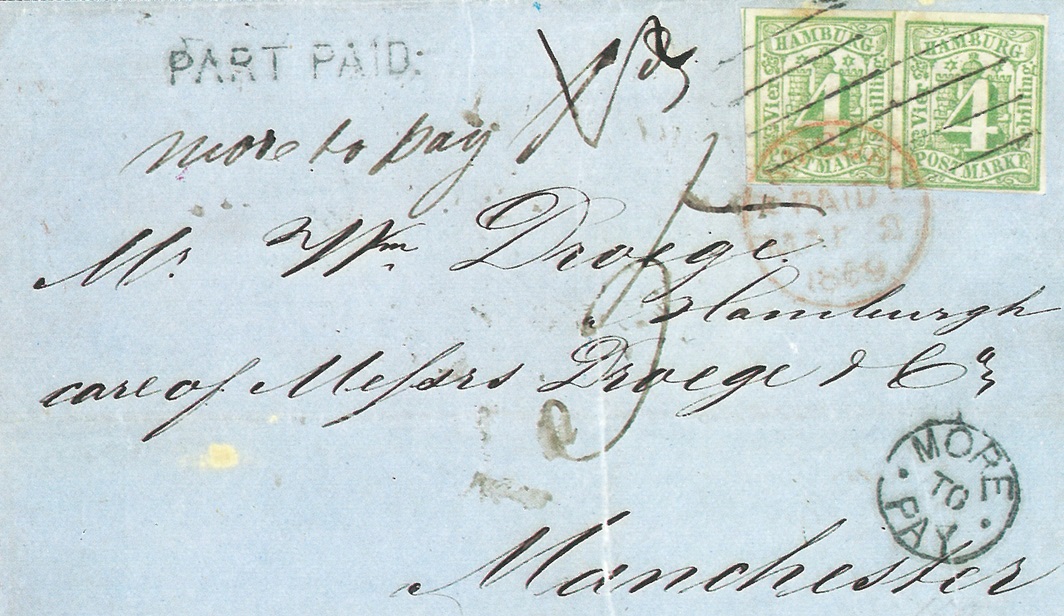 PART PAID:
HAMBURG
Vier
4
Schilling
POSTMARKE
HAMBURG
Vier
4
Schilling
POSTMARKE
more to pay
PAID
Mr. Wm Droege.
Hamburgh
care of Messrs Droege & Co
MORE
TO
PAY
Manchester